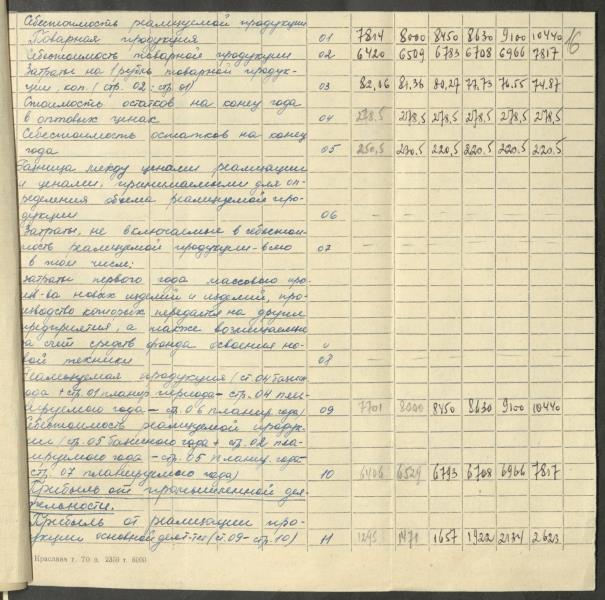 Себестоимость реализуемой продукции
Товарная продукция 01 7814 8000 8450 8630 9100 10440 16
Себестоимость товарной продукции 02 6420 6509 6783 6708 6966 7817
Затраты на 1 рубль товарной продук-
ции, коп. (стр. 02 : стр. 01) 03 82,16 81.36 80,27 77,73 76.55 74.87
Стоимость остатков на конец года
в оптовых ценах 04 278,5 278,5 278,5 278,5 278,5 278,5
Себестоимость остатков на конец
года 05 250,5 230.5 220,5 220.5 220.5 220.5
Разница между ценами реализации
и ценами, принимаемыми для оп-
ределения объема реализуемой про-
дукции 06 — — — — — —
Затраты, не включаемые в себестои-
мость реализуемой продукции - всего 07 — — — — — —
в том числе:
затраты первого года массового про-
из-ва новых изделий и изделий, про-
изводство которых передается на другие
предприятия, а также возмещаемые
за счет средств фонда освоения но-
вой техники 08
Реализуемая продукция (ст. 04 базисн.
года + стр. 01 планир. периода - стр. 04 план-
ируемого года - стр. 06 планир. года) 09 7701 8000 8450 8630 9100 10440
Себестоимость реализуемой продук-
ции (стр. 05 базисного года + стр. 02 пла-
нируемого года - стр. 05 планир. года -
стр. 07 планируемого года) 10 6406 6529 6793 6708 6966 7817
Прибыль от промышленной дея-
тельности.
Прибыль от реализации про-
дукции основной деят-ти (ст. 09 - стр. 10) 11 1295 1471 1657 1922 2134 2623
Краслава г. 70 з. 2350 т. 6000